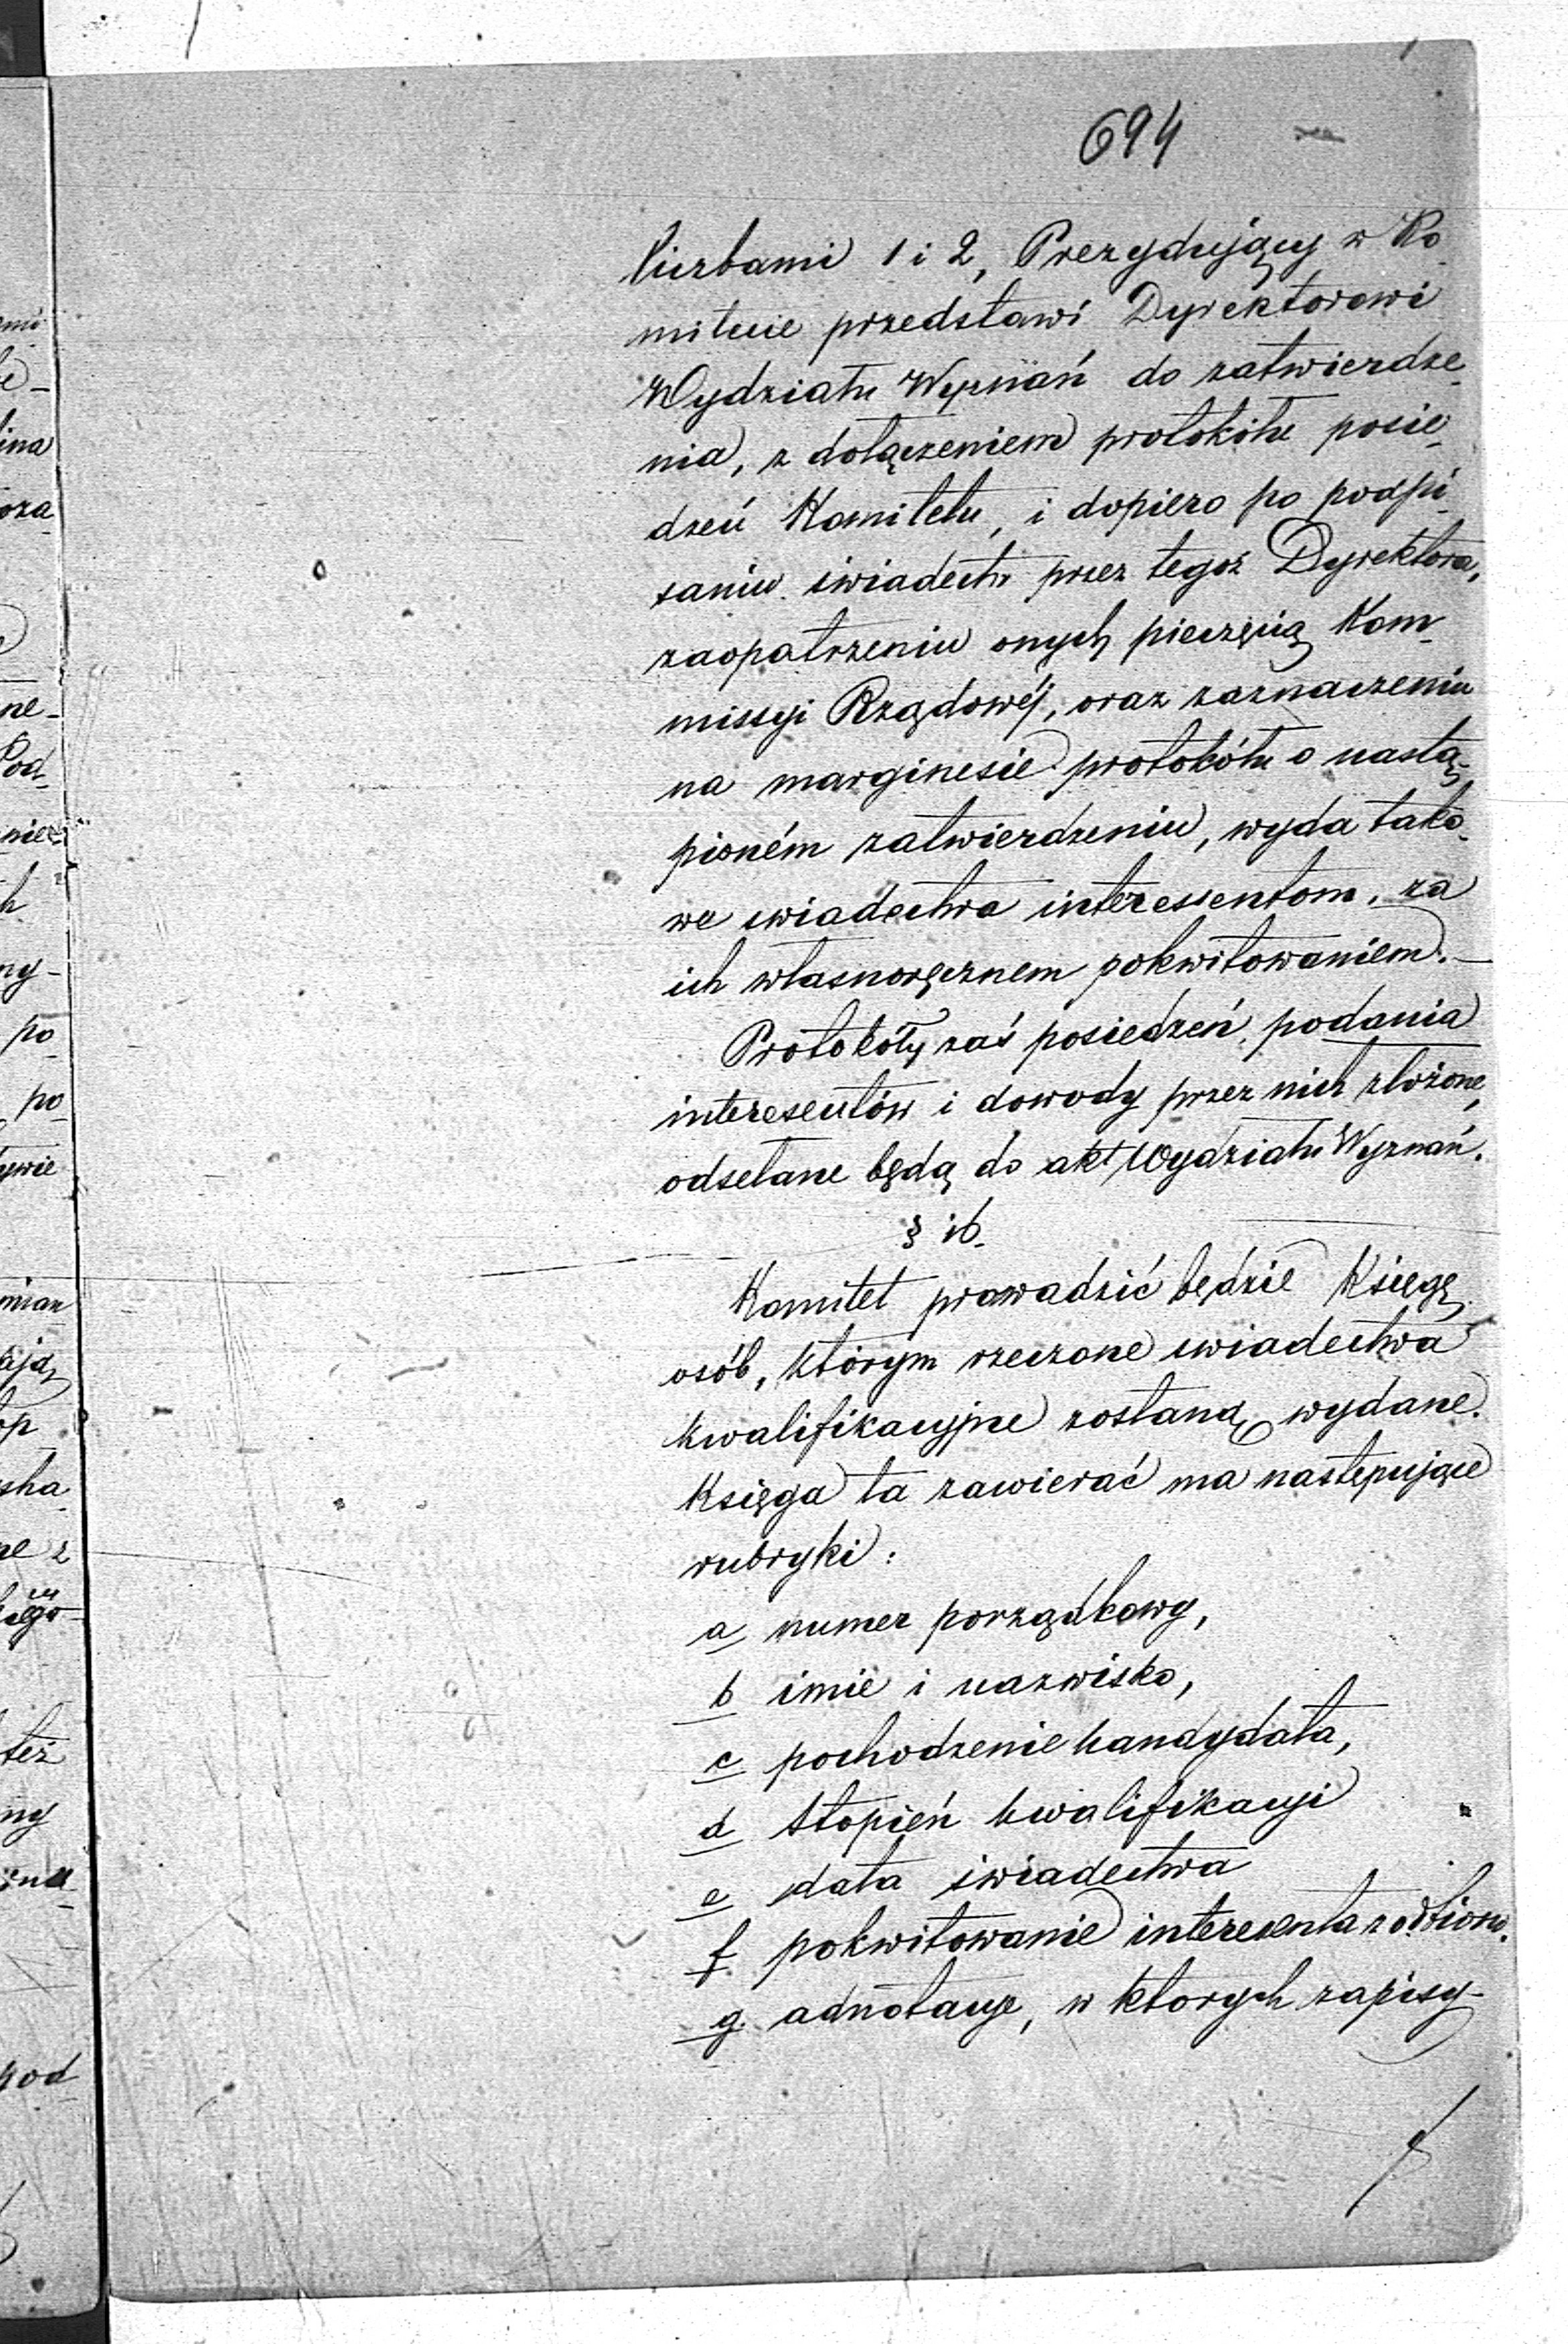 694
liczbami 1 i 2, Prezydujący w Ko
mitecie przedstawi Dyrektorowi
Wydziału Wyznań do zatwierdze
nia, z dołączeniem protokółu posie
dzeń Komitetu, i dopiero po podpi
saniu świadectw przez tegoż Dyrektora,
zaopatrzeniu onych pieczęcią Kom
missyi Rządowéj, oraz zaznaczeniu
na marginesie protokółu o nastą-
pioném zatwierdzeniu, wyda tako
we świadectwa interessentom, za
ich własnoręcznem pokwitowaniem.—
Protokóły zaś posiedzeń, podania
interesentów i dowody przez nich złożone,
odsełane będą do akt Wydziału Wyznań.
§ 16.
Komitet prowadzić będzie Księgę
osób, którym rzeczone świadectwa
kwalifikacyjne zostaną wydane.
Księga ta zawierać ma następujące
rubryki:
a numer porządkowy,
b imie i nazwisko,
c pochodzenie kandydata,
d stopień kwalifikacyi
e data świadectwa
f pokwitowanie interesenta z odbioru.
g. adnotacye, w ktorych zapisy-